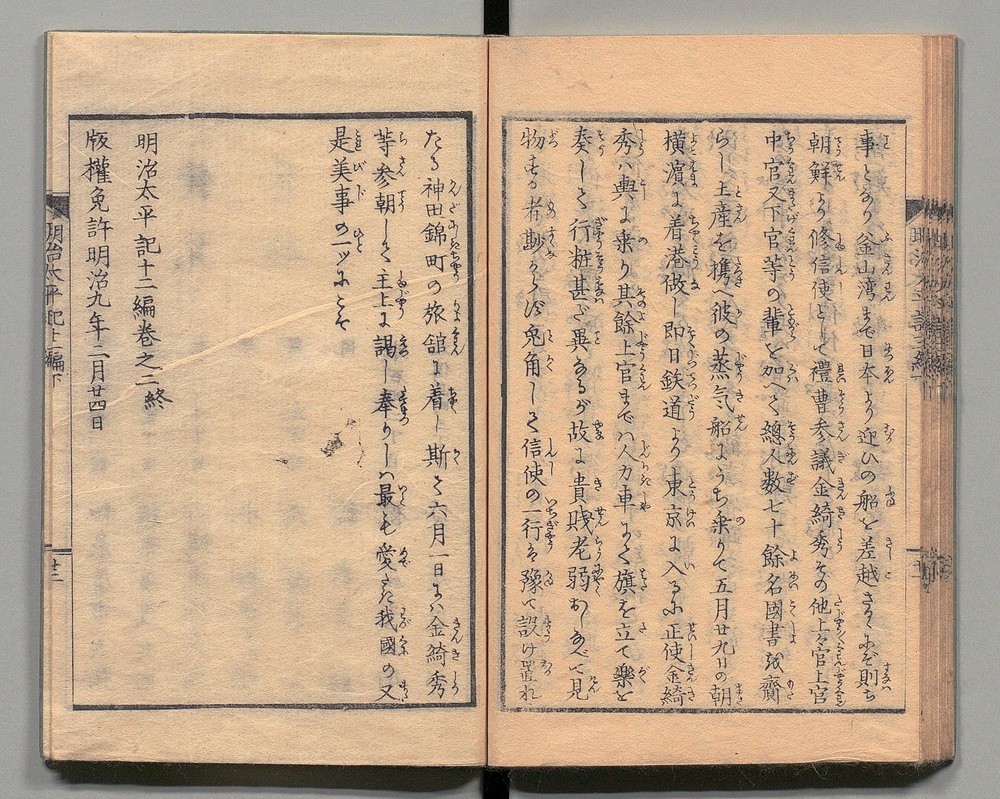 事となり釜山湾まで日本より迎ひの船を差越さるゝにぞ則ち
朝鮮より修信使として禮曹参議金綺秀その他上々官上官
中官又下官等の輩を加へて總人数七十餘名國書を齎
らし土産を携へ彼の蒸気船にうち乗りて五月廿九日の朝
横濱に着港做し即日鉄道より東京に入るに正使金綺
秀ハ輿に乗り其餘上官までハ人力車にて旗を立て樂を
奏して行粧甚だ異なるが故に貴賎老弱おしなべて見
物する者尠からず兎角して信使の一行は豫て設け置れ
たる神田錦町の旅舘に着し斯て六月一日にハ金綺秀
等参朝して主上に謁し奉りしハ最も愛たき我國の又
是美事の一ツにこそ
明治太平記十二編巻之二終
版權免許明治九年二月廿四日
明治太平記十二編下
廿二